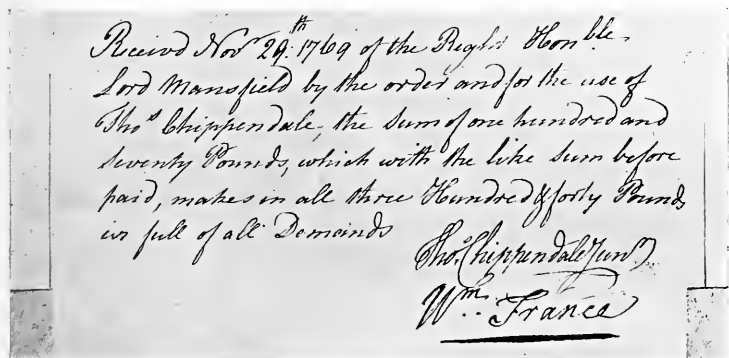 Receivd Novr. 29th. 1769 of the Right Honble.
Lord Mansfield by the order and for the use of
Thos. Chippendale, the Sum of one hundred and
Seventy Pounds, which with the like Sum before
paid, makes in all three Hundred & forty Pounds
in full of all Demands
Thos. Chippendale Junr.
Wm. France